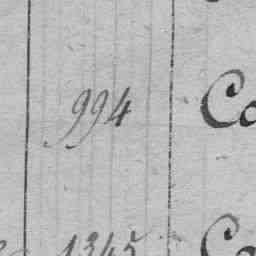 994 Co
1345 Co